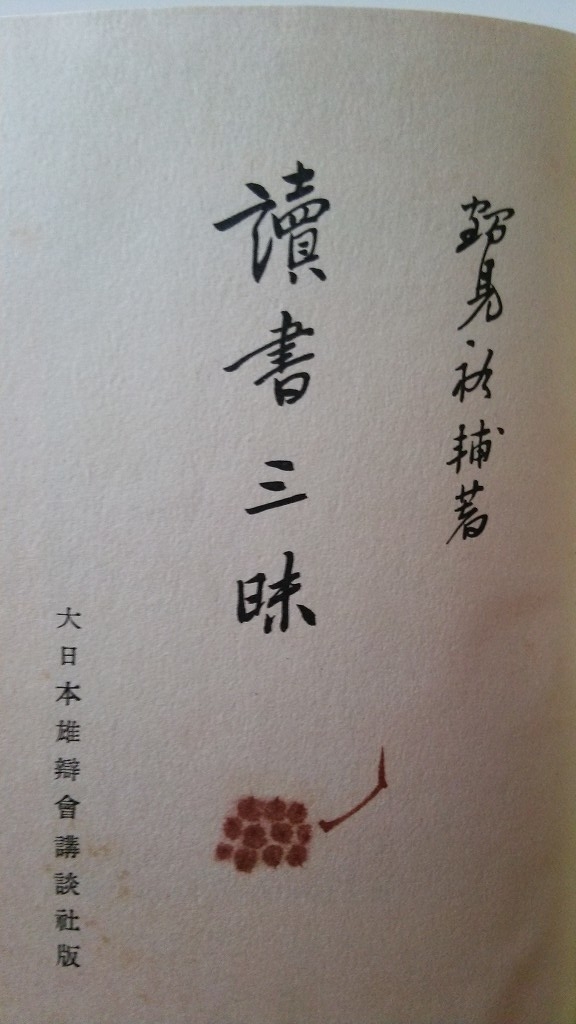 鶴見祐輔著
讀書三昧
大日本雄辯會講談社版